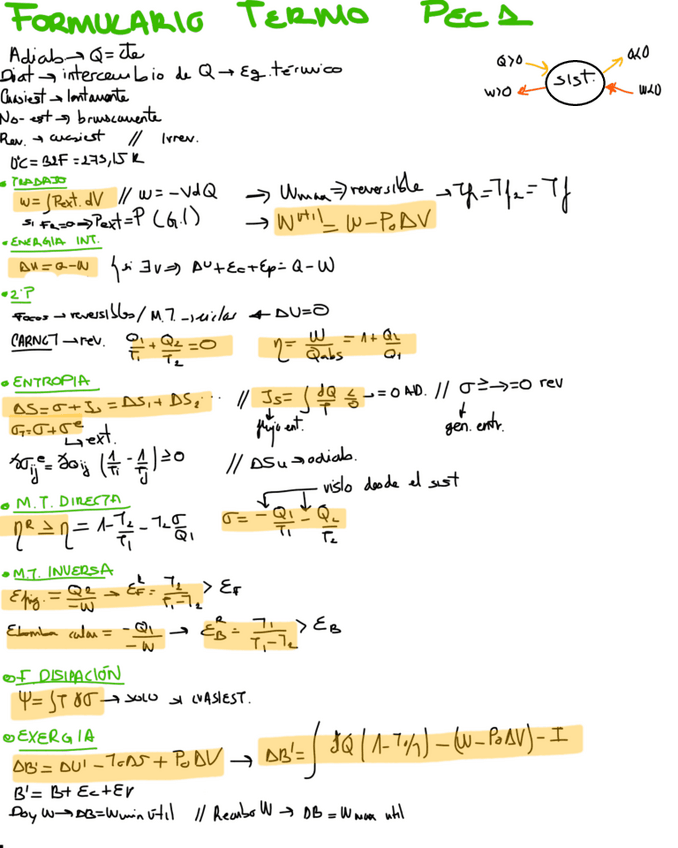 FORMULARIO TERMO PEC 1
Adiab → Q = cte
Diat → intercambio de Q → Eq. térmico
Cuasiest → lentamente
No-est → bruscamente
Rev. → cuasiest // Irrev.
0°C = 32F = 273,15 K
Q>0 Q<0
sist.
W>0 W<0
• TRABAJO
W = ∫Pext. dV // W = -VdQ → Wmax ⇒ reversible → Tf1 = Tf2 = Tf
si FR=0 → Pext = P (G.I) → W útil = W - P₀ΔV
• ENERGIA INT.
ΔU = Q - W { si ∃v ⇒ ΔU + Ec + Ep = Q - W
• 2ºP
Focos → reversibles / M.T. → ciclos ΔU = 0
CARNOT → rev. Q1/T1 + Q2/T2 = 0 η = W/Qabs = 1 + Q2/Q1
• ENTROPIA
ΔS = σ + Js = ΔS1 + ΔS2.. // Js = ∫ đQ/T ≤0 → = 0 AD. // σ ≥ → = 0 rev
σT = σ + σᵉ flujo ent. gen. entr.
ext.
δσijᵉ = δQij (1/Ti - 1/Tj) ≥ 0 // ΔSu → adiab.
visto desde el sist
• M.T. DIRECTA
ηᴿ ≥ η = 1 - T2/T1 - T2σ/Q1 σ = - Q1/T1 - Q2/T2
• M.T. INVERSA
Efrig. = Q2/-W → εFᴿ = T2/T1-T2 > εF
Ebomba calor = -Q1/-W → εBᴿ = T1/T1-T2 > εB
• F DISIPACIÓN
Ψ = ∫T δσ → SOLO CUASIEST.
• EXERGIA
ΔB = ΔU - T₀ΔS + P₀ΔV → ΔB' = ∫ đQ (1 - T₀/T) - (W - P₀ΔV) - I
B' = B + Ec + Ev
Doy W → ΔB = Wmin útil // Recibo W → ΔB = Wmax util